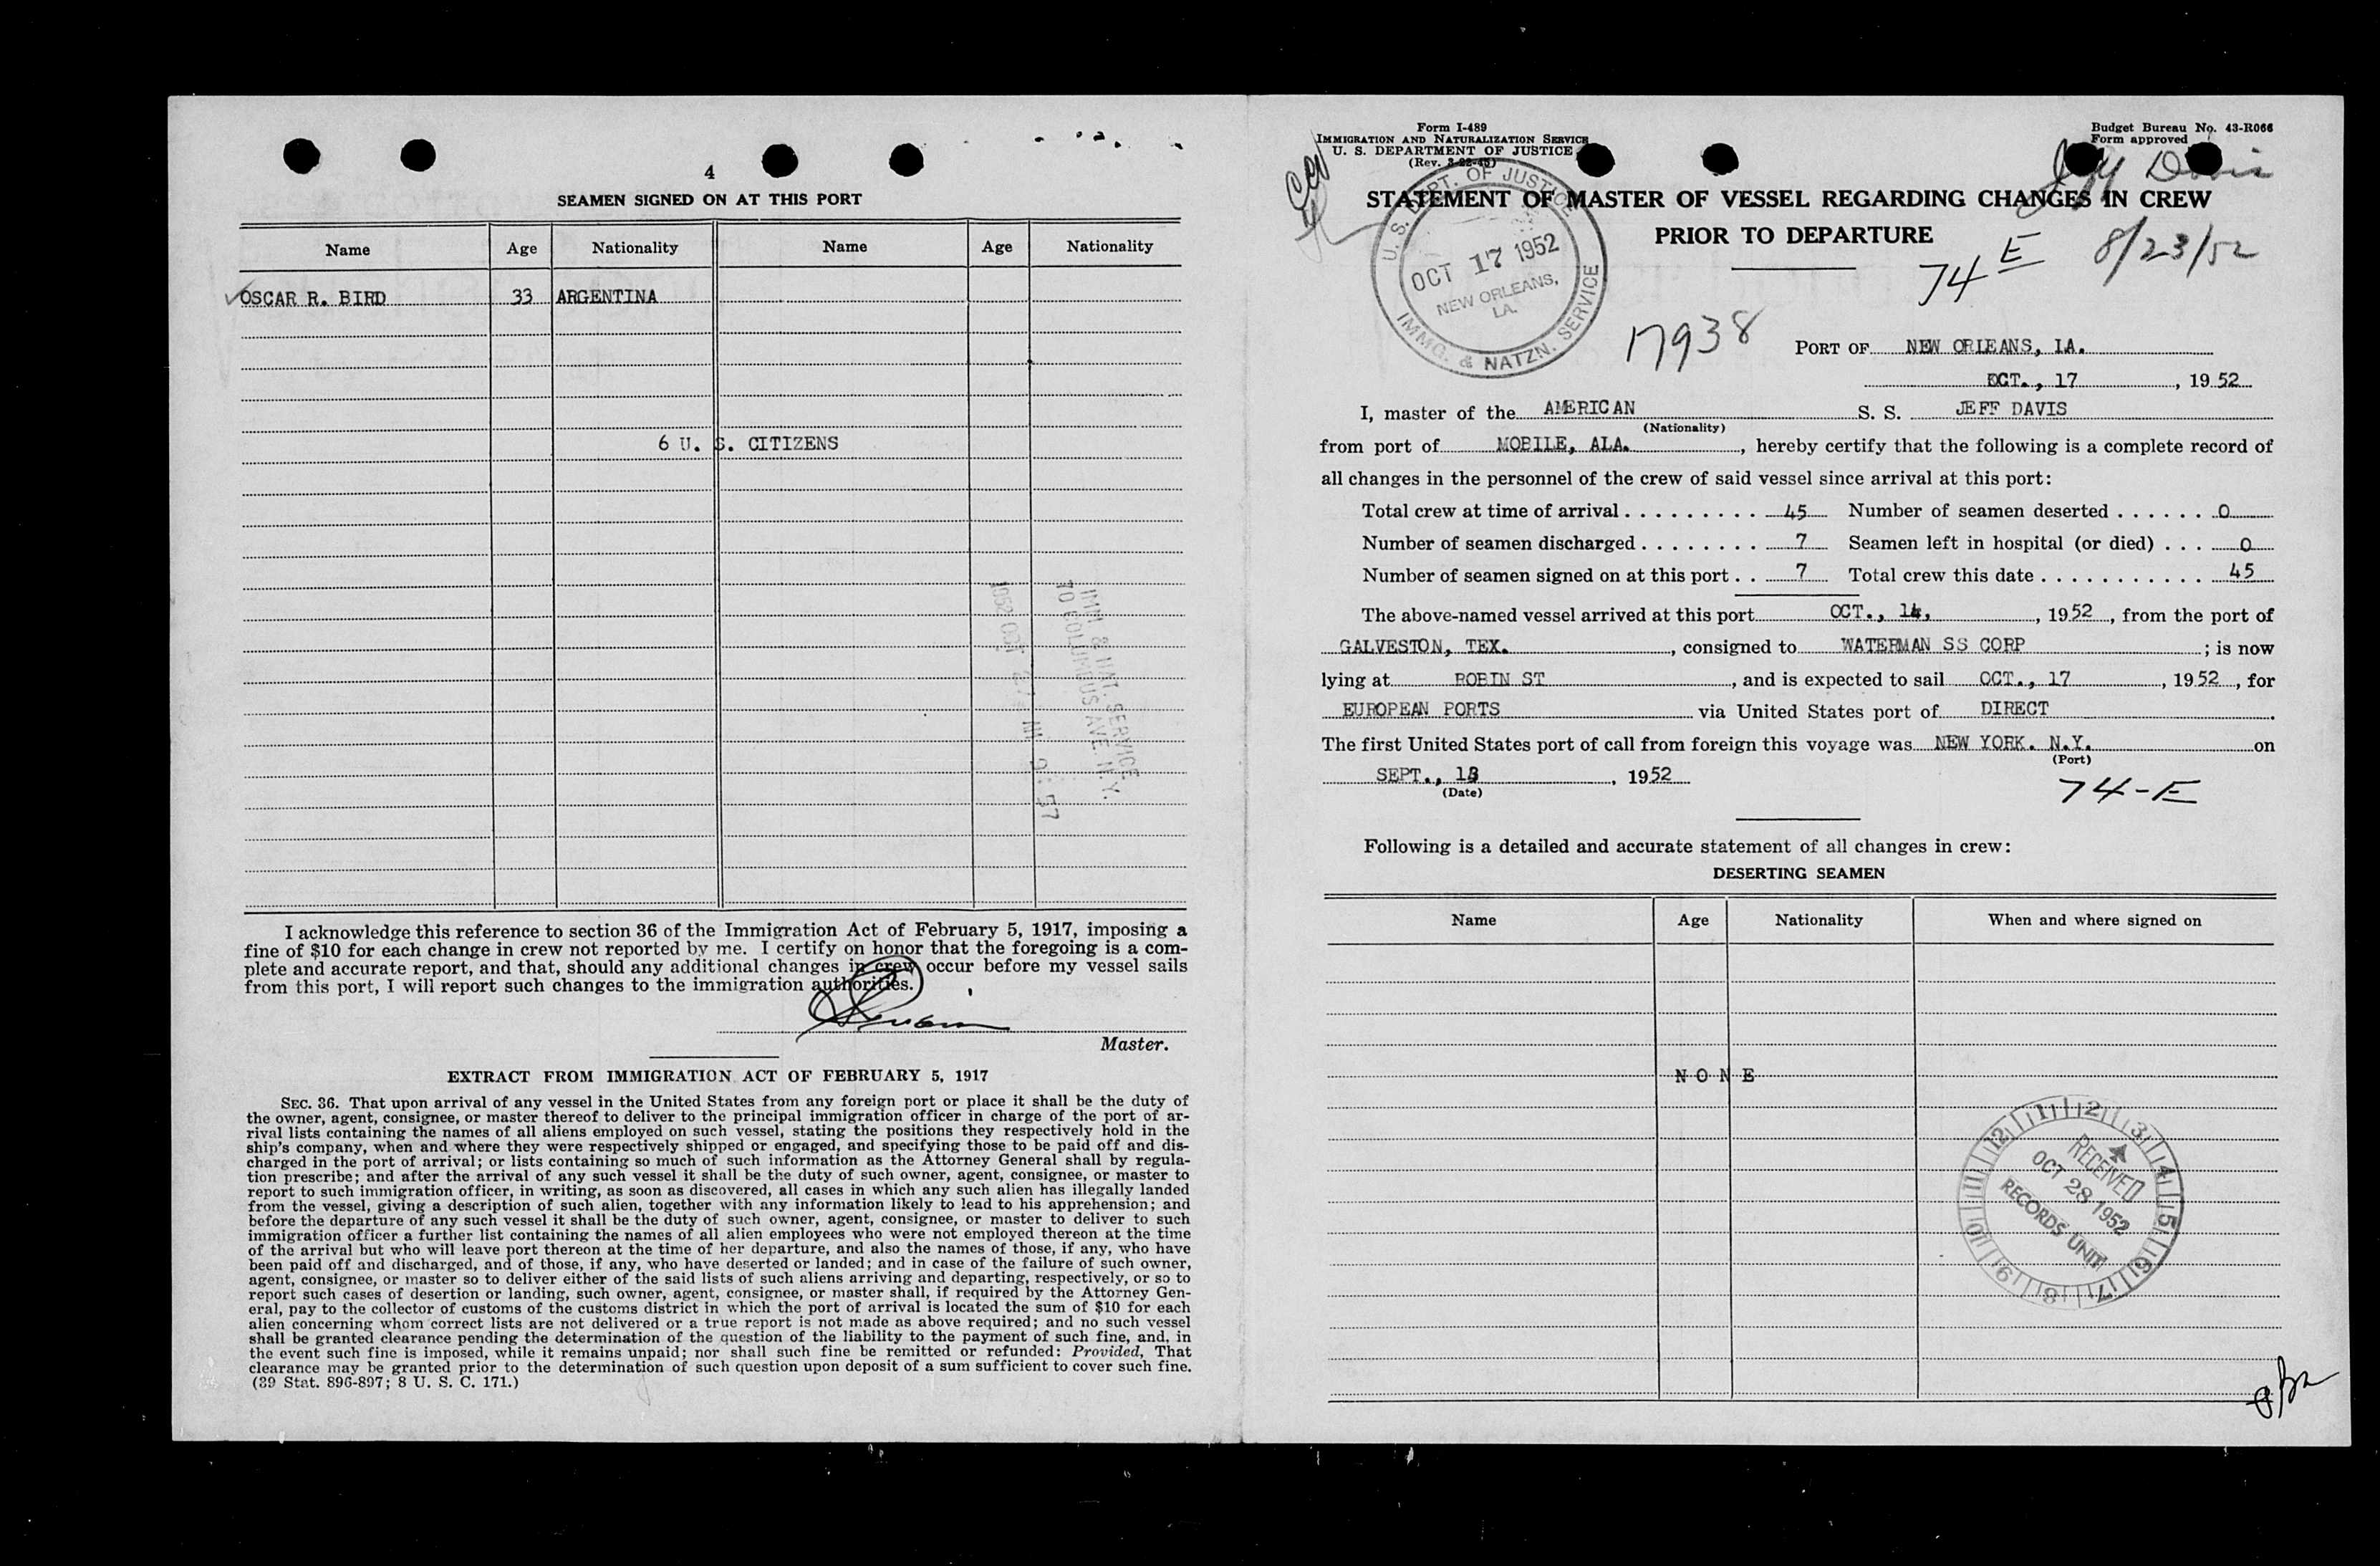 4
SEAMEN SIGNED ON AT THIS PORT
Name Age Nationality Name Age Nationality
OSCAR R. BIRD 33 ARGENTINA
6 U. S. CITIZENS
IMM & NAT. SERVICE
70 COLUMBUS AVE. N.Y.
1952 OCT 27 9:57
I acknowledge this reference to section 36 of the Immigration Act of February 5, 1917, imposing a
fine of $10 for each change in crew not reported by me. I certify on honor that the foregoing is a com-
plete and accurate report, and that, should any additional changes in crew occur before my vessel sails
from this port, I will report such changes to the immigration authorities.
Master.
EXTRACT FROM IMMIGRATION ACT OF FEBRUARY 5, 1917
SEC. 36. That upon arrival of any vessel in the United States from any foreign port or place it shall be the duty of
the owner, agent, consignee, or master thereof to deliver to the principal immigration officer in charge of the port of ar-
rival lists containing the names of all aliens employed on such vessel, stating the positions they respectively hold in the
ship's company, when and where they were respectively shipped or engaged, and specifying those to be paid off and dis-
charged in the port of arrival; or lists containing so much of such information as the Attorney General shall by regula-
tion prescribe; and after the arrival of any such vessel it shall be the duty of such owner, agent, consignee, or master to
report to such immigration officer, in writing, as soon as discovered, all cases in which any such alien has illegally landed
from the vessel, giving a description of such alien, together with any information likely to lead to his apprehension; and
before the departure of any such vessel it shall be the duty of such owner, agent, consignee, or master to deliver to such
immigration officer a further list containing the names of all alien employees who were not employed thereon at the time
of the arrival but who will leave port thereon at the time of her departure, and also the names of those, if any, who have
been paid off and discharged, and of those, if any, who have deserted or landed; and in case of the failure of such owner,
agent, consignee, or master so to deliver either of the said lists of such aliens arriving and departing, respectively, or so to
report such cases of desertion or landing, such owner, agent, consignee, or master shall, if required by the Attorney Gen-
eral, pay to the collector of customs of the customs district in which the port of arrival is located the sum of $10 for each
alien concerning whom correct lists are not delivered or a true report is not made as above required; and no such vessel
shall be granted clearance pending the determination of the question of the liability to the payment of such fine, and, in
the event such fine is imposed, while it remains unpaid; nor shall such fine be remitted or refunded: Provided, That
clearance may be granted prior to the determination of such question upon deposit of a sum sufficient to cover such fine.
(39 Stat. 896-897; 8 U. S. C. 171.)
Form I-489
IMMIGRATION AND NATURALIZATION SERVICE
U. S. DEPARTMENT OF JUSTICE
(Rev. 3-22-45)
Budget Bureau No. 43-R066
Form approved
Jeff Davis
STATEMENT OF MASTER OF VESSEL REGARDING CHANGES IN CREW
PRIOR TO DEPARTURE
8/23/52
74 E
U. S. DEPT. OF JUSTICE
OCT 17 1952
NEW ORLEANS,
LA.
IMMG. & NATZN. SERVICE
17938
PORT OF NEW ORLEANS, LA.
OCT., 17, 1952
I, master of the AMERICAN S. S. JEFF DAVIS
(Nationality)
from port of MOBILE, ALA., hereby certify that the following is a complete record of
all changes in the personnel of the crew of said vessel since arrival at this port:
Total crew at time of arrival 45 Number of seamen deserted 0
Number of seamen discharged 7 Seamen left in hospital (or died) 0
Number of seamen signed on at this port 7 Total crew this date 45
The above-named vessel arrived at this port OCT., 14, 1952, from the port of
GALVESTON, TEX., consigned to WATERMAN SS CORP; is now
lying at ROBIN ST, and is expected to sail OCT., 17, 1952, for
EUROPEAN PORTS via United States port of DIRECT.
The first United States port of call from foreign this voyage was NEW YORK. N.Y. on
(Port)
SEPT., 13, 1952
(Date)
74-E
Following is a detailed and accurate statement of all changes in crew:
DESERTING SEAMEN
Name Age Nationality When and where signed on
NONE
12 1 2 3 4 5 6 7 8 9 10 11
RECEIVED
OCT 28 1952
RECORDS UNIT